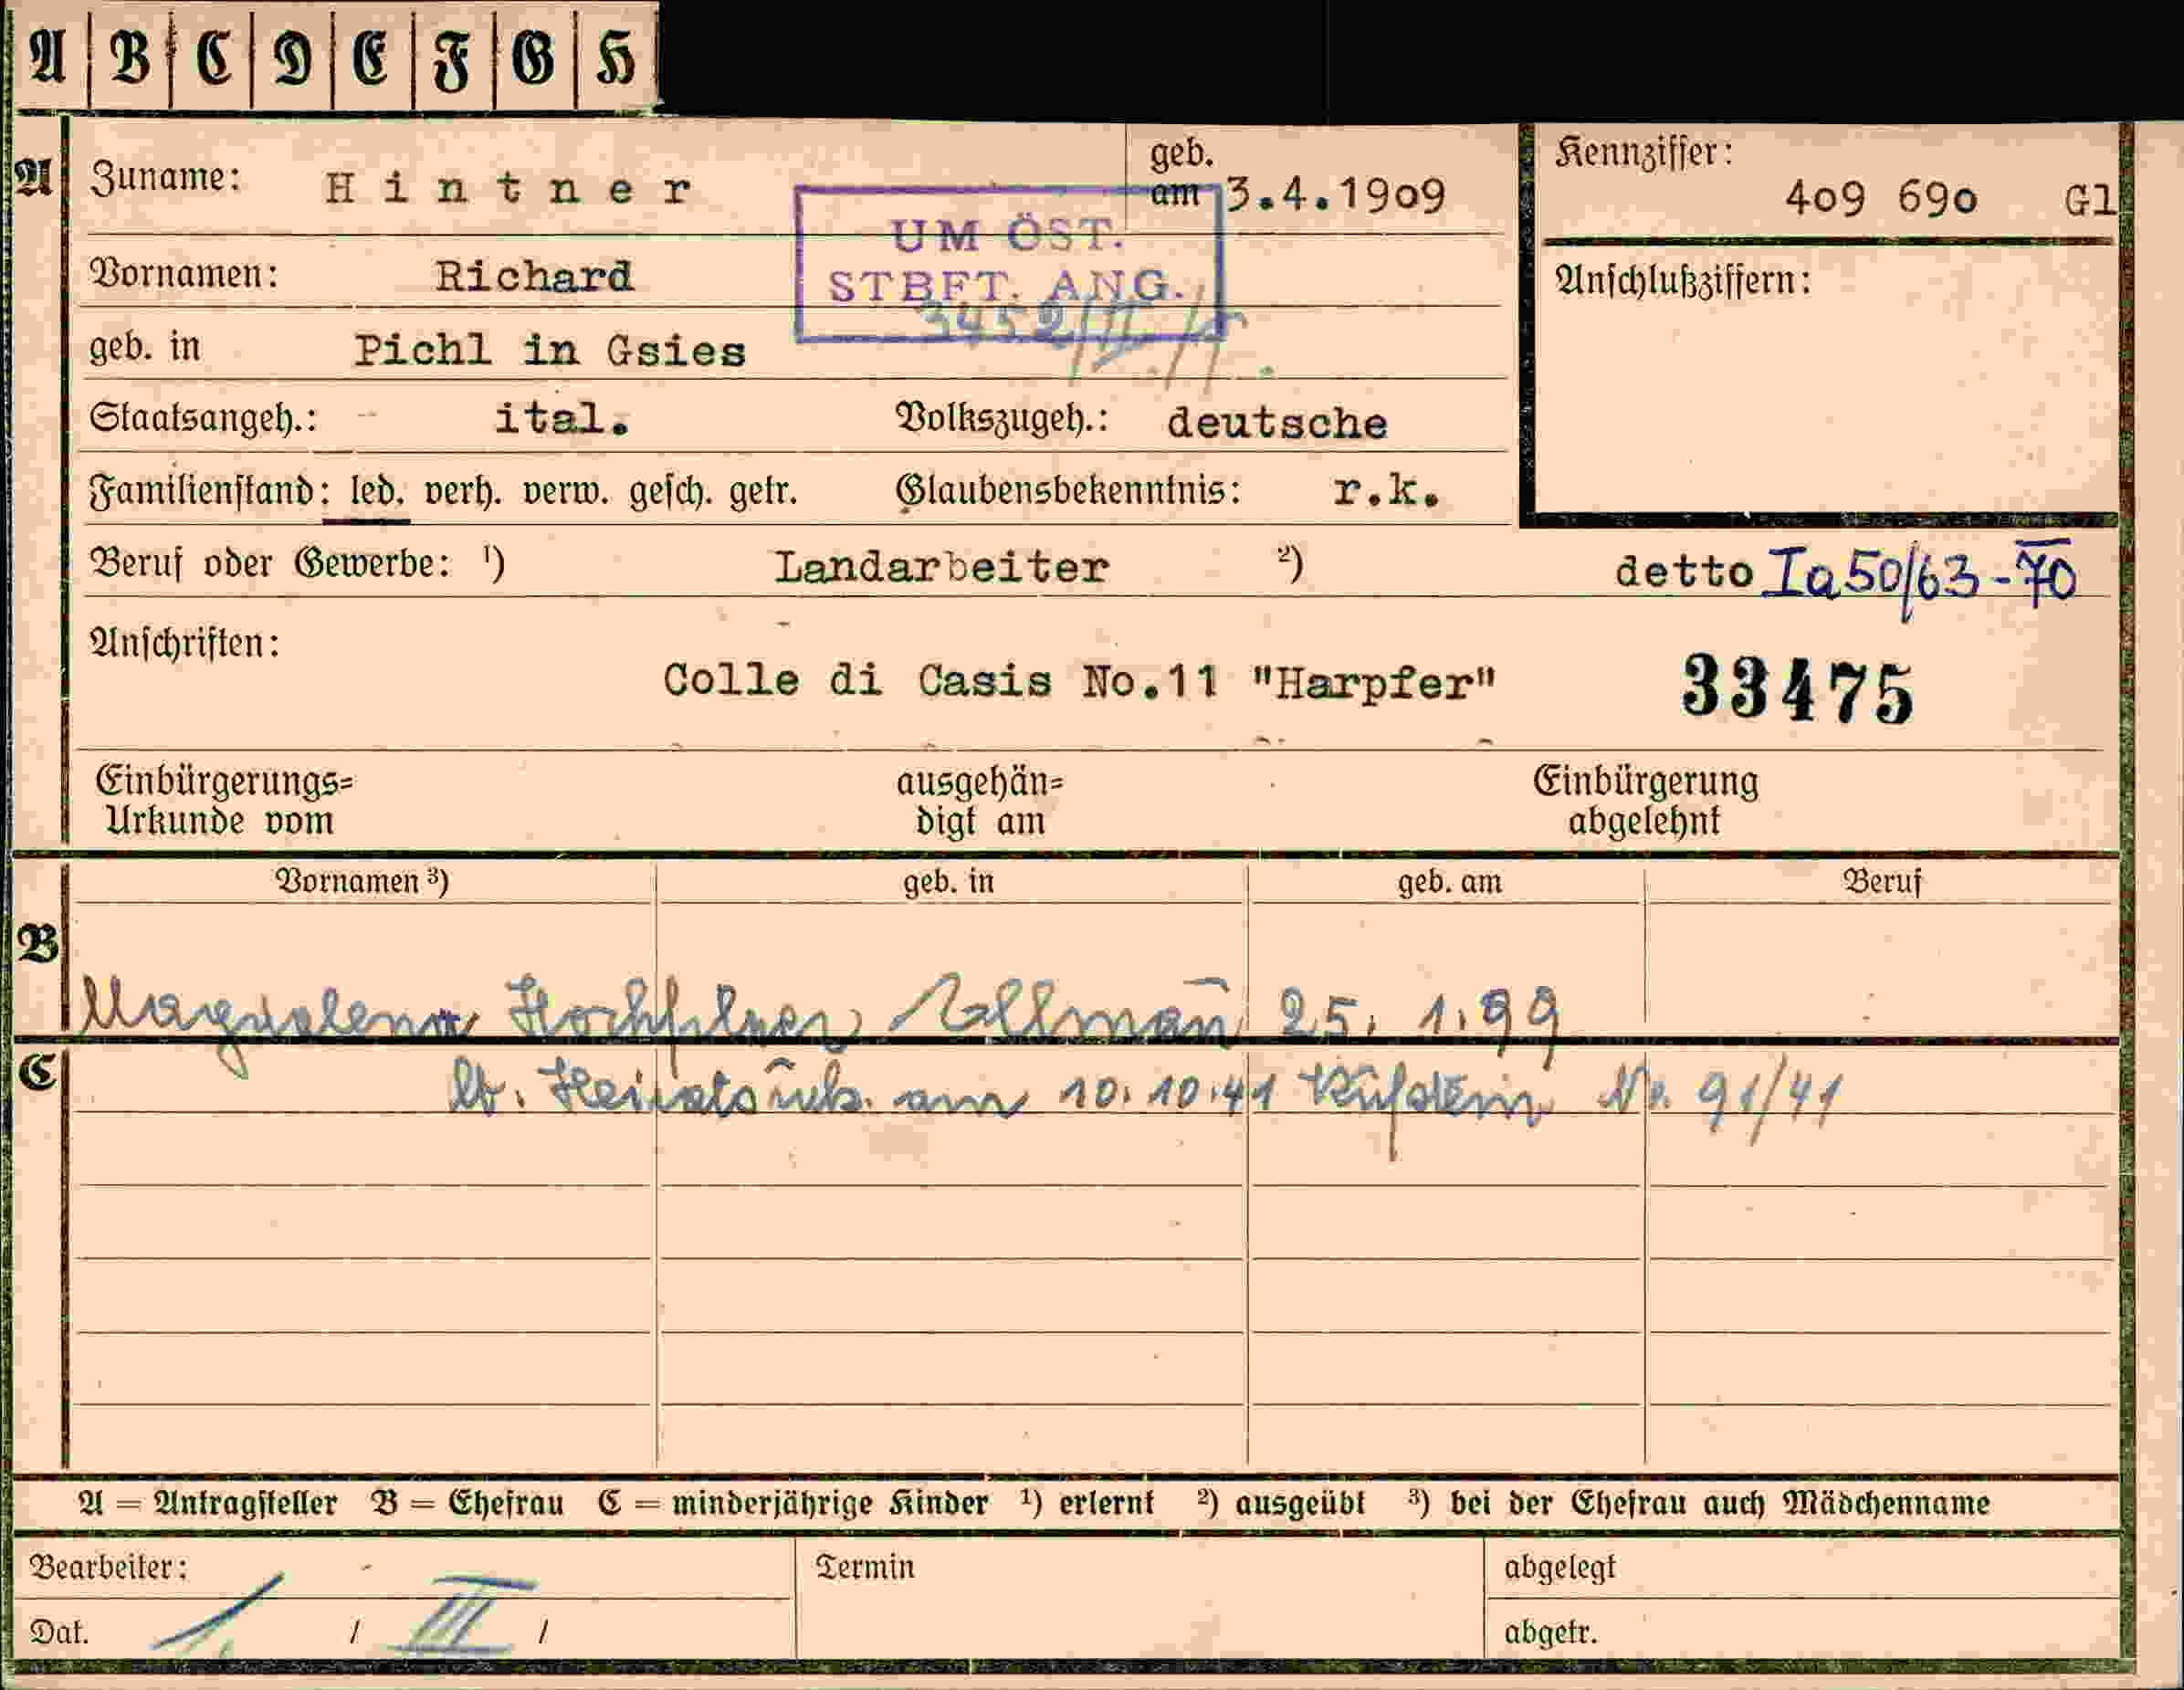 A B C D E F G H
A Zuname: Hintner geb. am 3.4.1909 Kennziffer: 409 690 Gl
UM ÖST.
STBFT. ANG.
Vornamen: Richard Anschlußziffern:
geb. in Pichl in Gsies
Staatsangeh.: ital. Volkszugeh.: deutsche
Familienstand: led. verh. verw. gesch. getr. Glaubensbekenntnis: r.k.
Beruf oder Gewerbe: ¹) Landarbeiter ²) detto Ia50/63-70
Anschriften:
Colle di Casis No.11 "Harpfer" 33475
Einbürgerungs= ausgehän= Einbürgerung
Urkunde vom digt am abgelehnt
Vornamen ³) geb. in geb. am Beruf
B
Magdalena 25. 1. 99
C
lt. Heiratsurk. am 10.10.41 Kufstein Nr. 91/41
A = Antragsteller B = Ehefrau C = minderjährige Kinder ¹) erlernt ²) ausgeübt ³) bei der Ehefrau auch Mädchenname
Bearbeiter: Termin abgelegt
Dat. / III / abgetr.